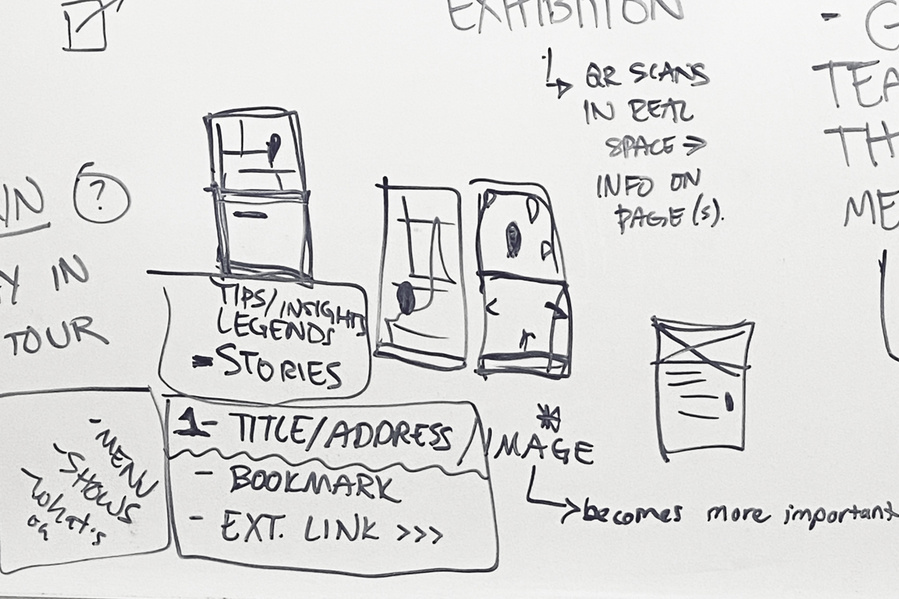 EXHIBITION
QR SCANS
IN REAL
SPACE →
INFO ON
PAGE(S).
- G
TEA
TH
ME
IN ?
Y IN
TOUR
TIPS/INSIGHTS
LEGENDS
- STORIES
1- TITLE/ADDRESS /IMAGE
- BOOKMARK
- EXT. LINK >>>
*
becomes more important
- MENU
SHOWS
what's